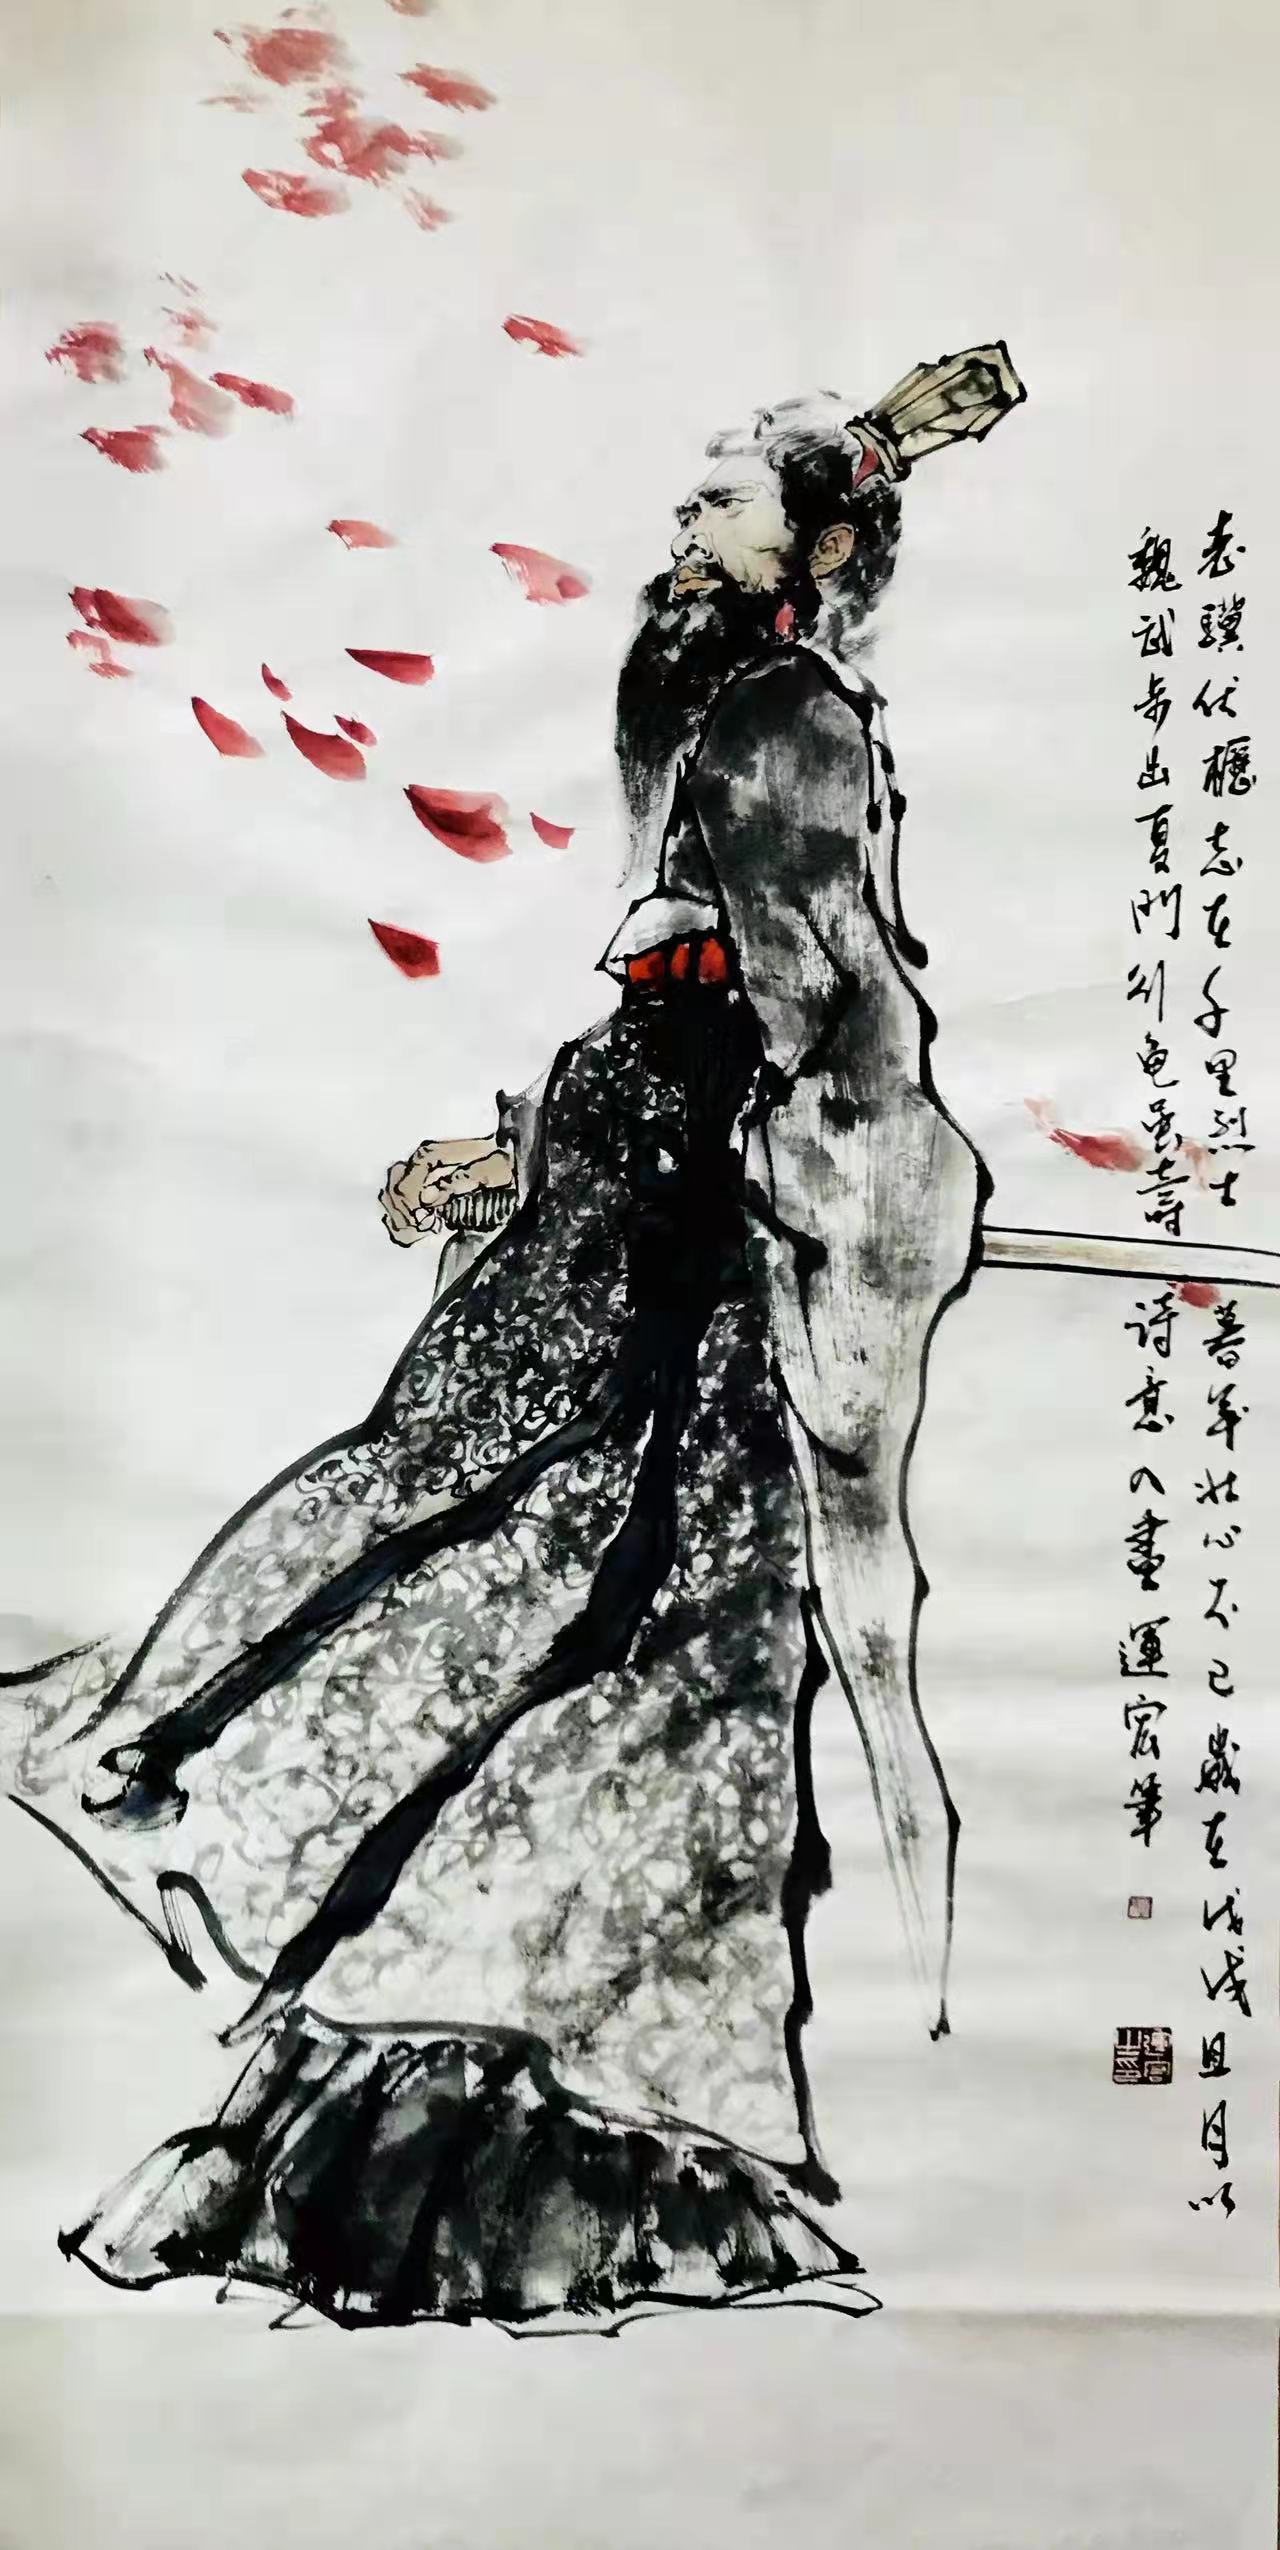 老骥伏櫪志在千里烈士暮年壮心不已歲在戊戌且月以
魏武步出夏門行龟虽壽詩意入畫運宏筆